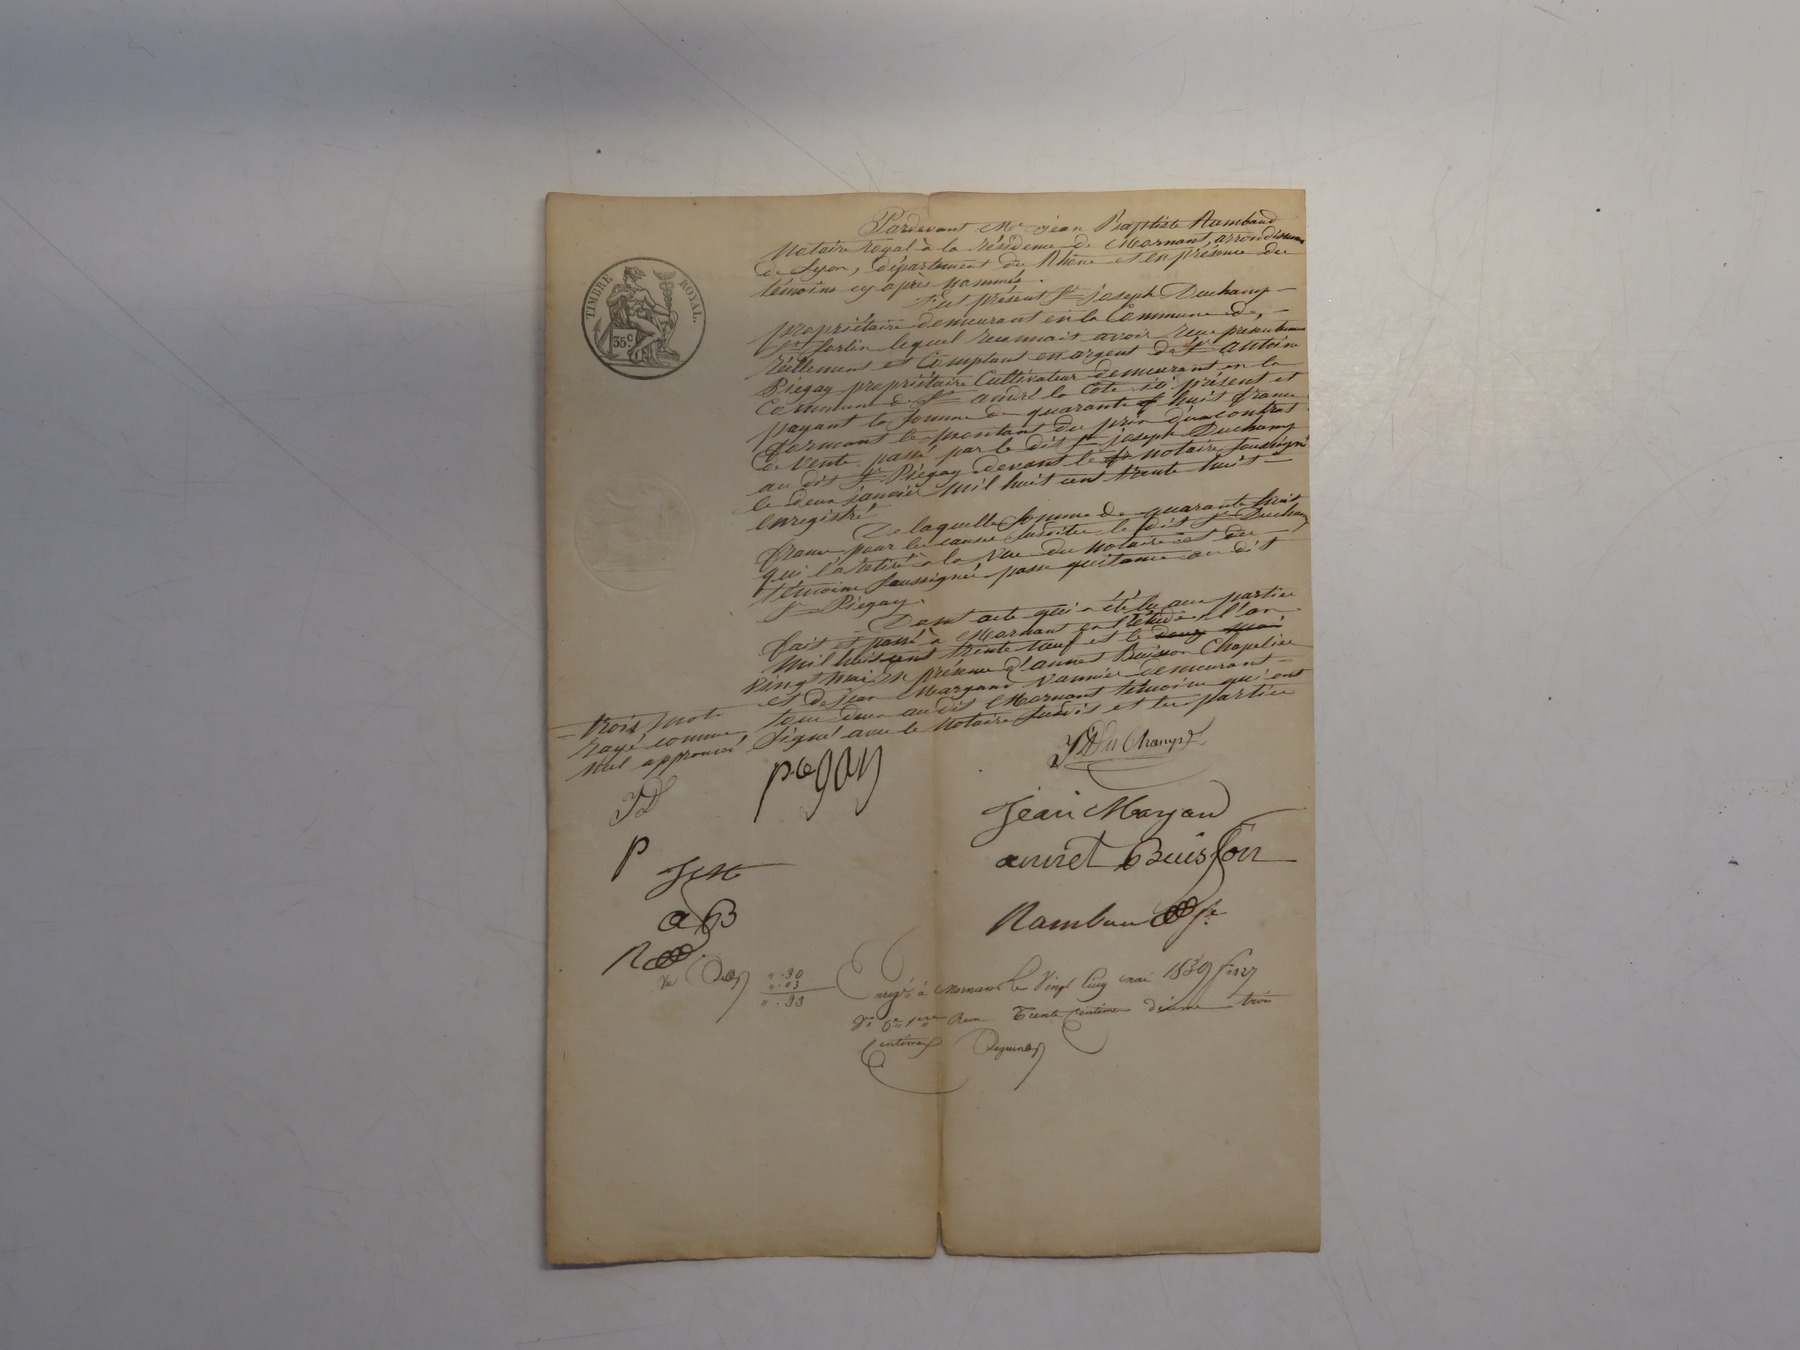 Pardevant Me jean Baptiste Rambaud
Notaire royal à la résidence de Mornant, arrondissement
de Lyon, département du Rhône et en présence des
témoins cy après nommés.
Est présent Sr joseph Duchamp
propriétaire demeurant en la Commune de
St Sorlin lequel reconnait avoir reçu présentement
réellement et Comptant en argent de Sr antoine
Piegay propriétaire Cultivateur demeurant en la
Commune de St andré la Cote ici présent et
payant la somme de quarante huit francs
formant le montant du prix d'un contrat
de vente passé par le dit Sr joseph Duchamp
au dit Sr Piegay devant le notaire soussigné
le deux janvier mil huit cent trente huit
enregistré.
De laquelle somme de quarante huit
francs pour les causes susdites le dit Sr Duchamp
qui l'a retiré à la vue du notaire et des
témoins soussignés passe quitance au dit
Sr Piegay.
Dont acte qui a été lu aux parties
fait et passé à Mornant en l'étude, l'an
mil huit cent trente neuf et le deux mai
vingt mai en présence d'annet Buisson Chapelier
et de jean Margand Vannier demeurant
tous deux au dit Mornant témoins qui ont
signé avec le Notaire susdit et les parties
trois mots
rayé comme
nul approuvé
TIMBRE ROYAL.
35c
JDuchamp
pegay
JD
Jean Margand
P
annet Buisson
JM
aB
Rambaud
R
" . 30
" . 03
" . 33
Enregé à Mornant le Vingt Cinq mai 1839 fo
Reçu Trente Centimes dixieme trois
Centimes